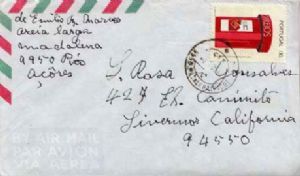 de Emilio M. Amaros
Areia larga
madalena
9950 Pico
Açôres
PORTUGAL
S. Rosa Gonsalves
427 El Caminito
Livermos California
94550
BY AIR MAIL
PAR AVION
VIA AEREA